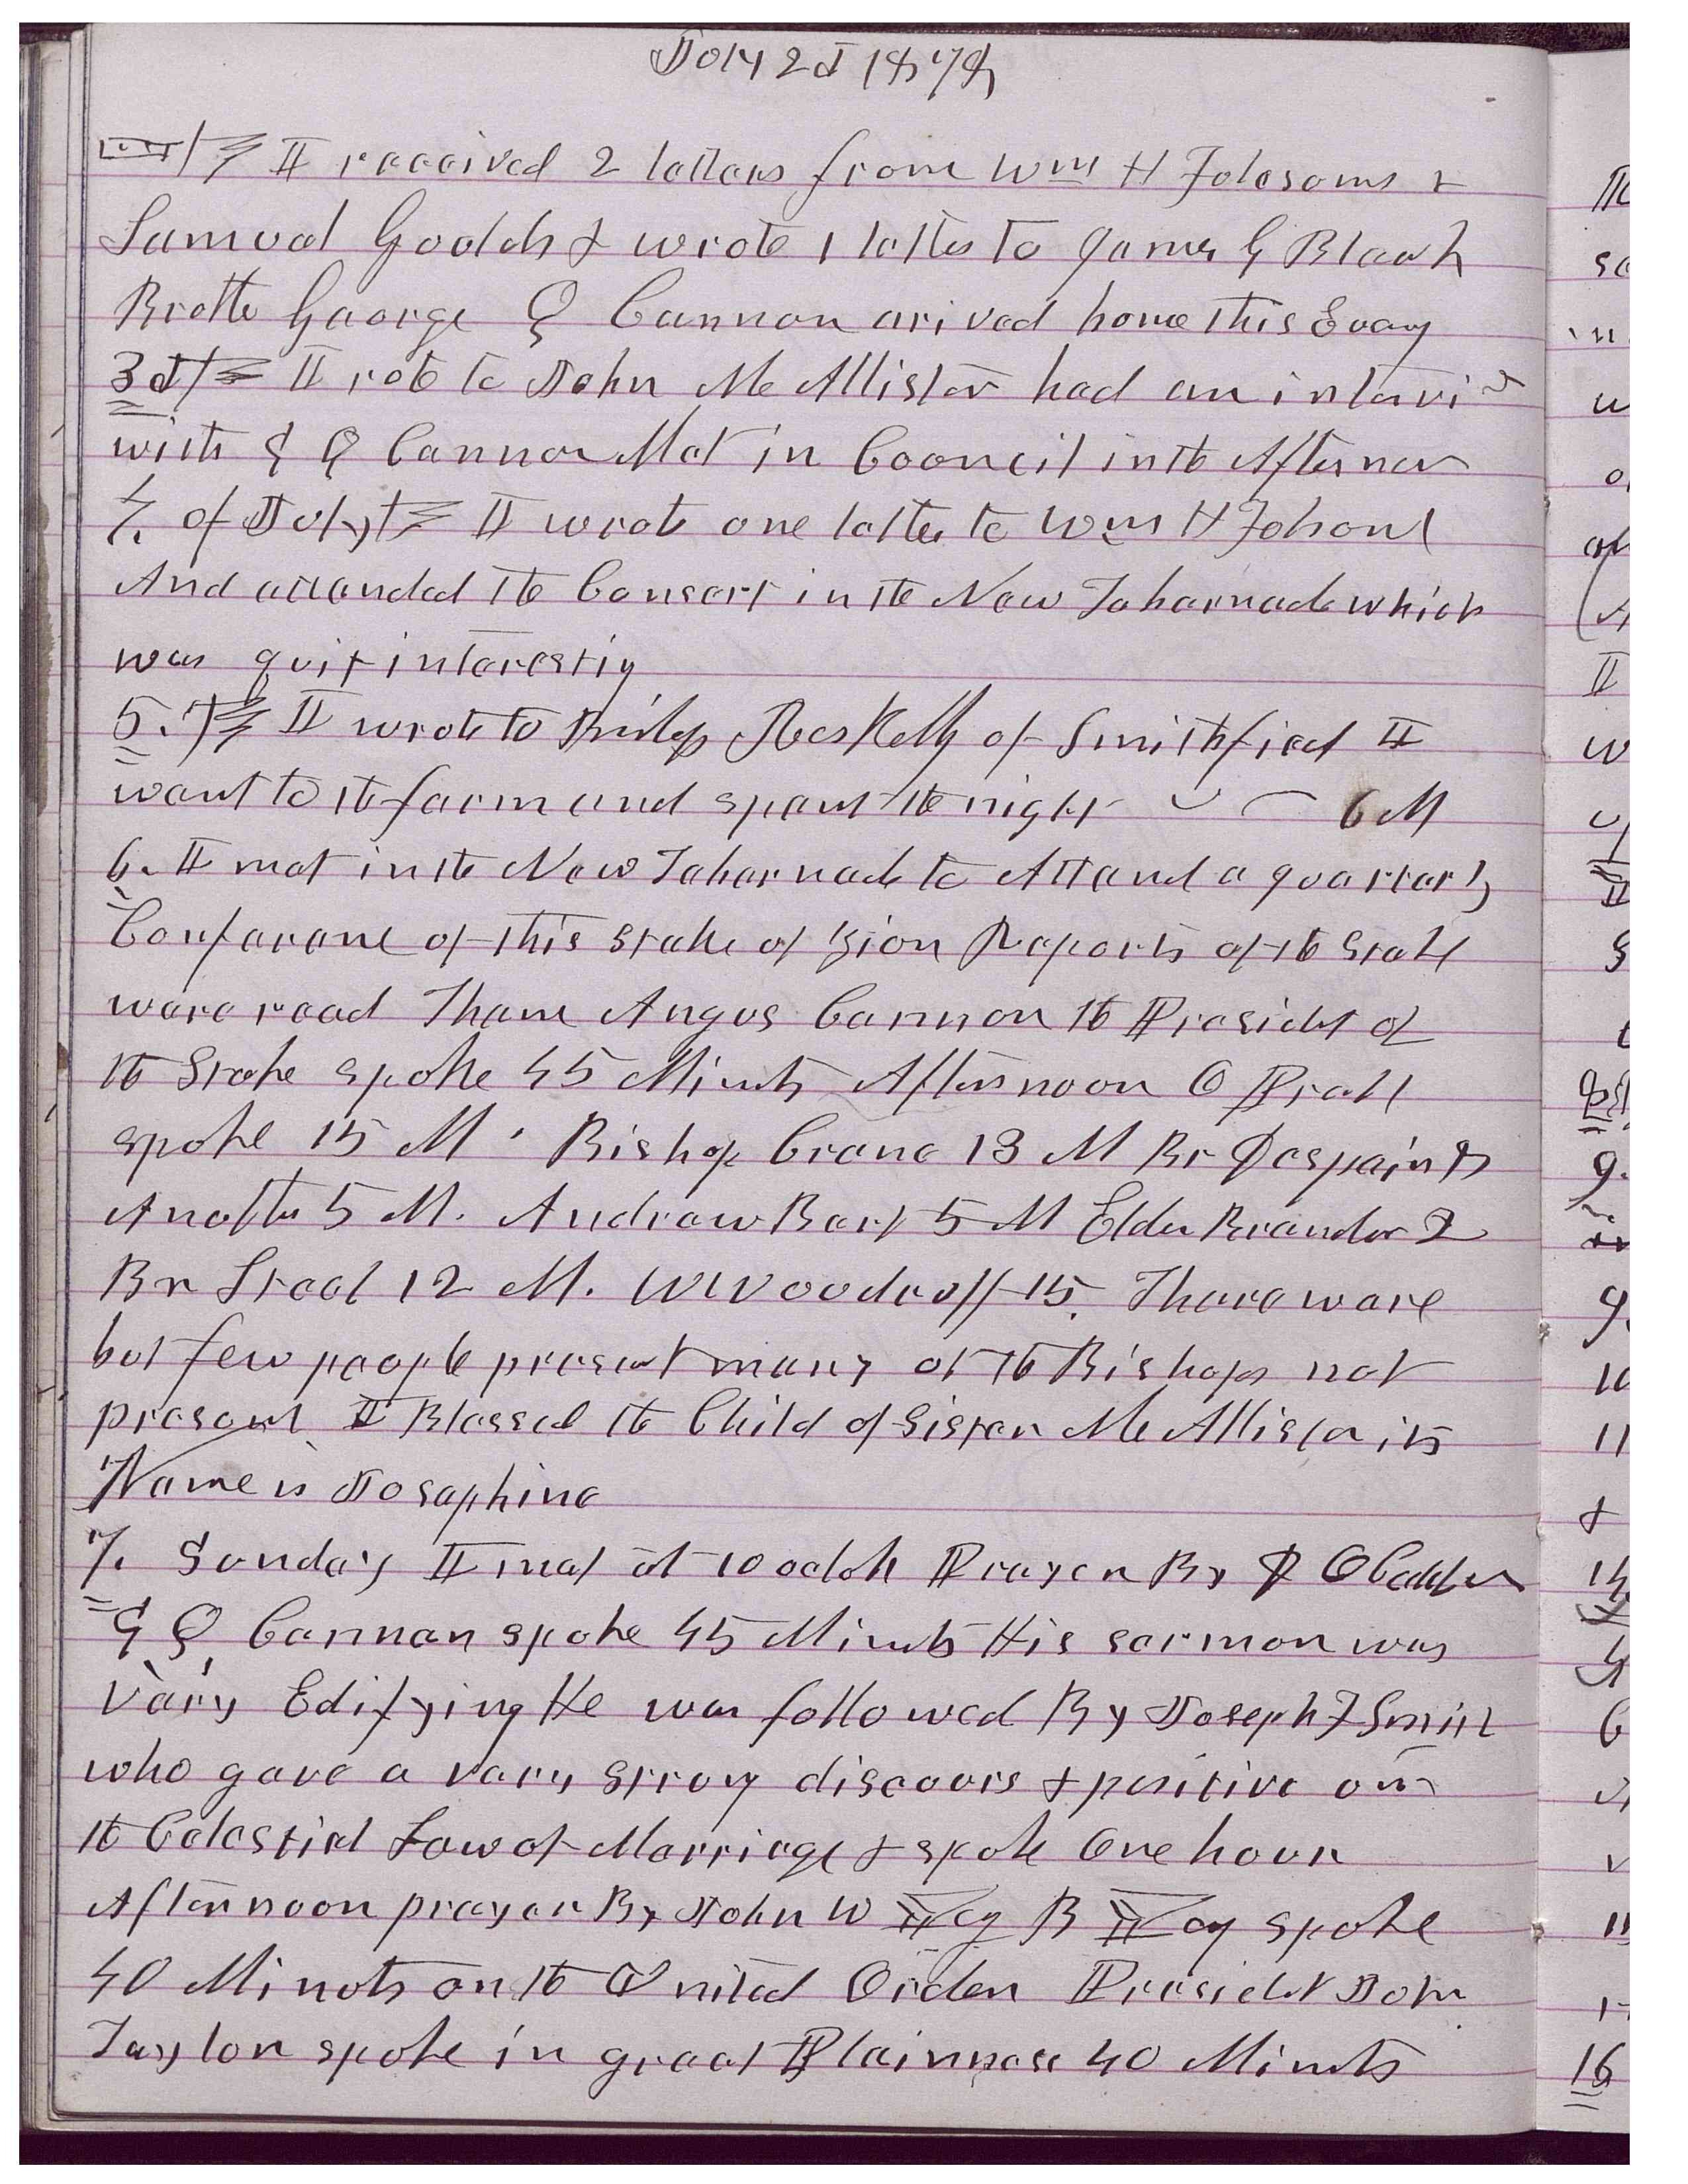 July 2d 1878
I received 2 letters from Wm H Folsoms &
Samuel Goddch & wrote 1 letter to James G Bleak
Brother George Q Cannon arived home this Eveng
3d I rote to John McAllister had an intervi
with G Q Cannon Met in Council in the Afternoon
4. of July I wrote one letter to Wm H Folsom
And attended the Consert in the New Tabernacle which
was quit interestig
5. I wrote to Bishop Roskelly of Smithfied I
went to the farm and spent the night 6 M
6. I met in the New Tabernacle to Attend a quarterly
Conferance of this Stake of Zion Reports of the Stake
were read Then Angus Cannon the President of
the Stake spoke 45 Minuts Afternoon O Pratt
spoke 15 M. Bishop Crane 13 M Br Despain &
Another 5 M. Andrew 5 M Elder 2
Br 12 M. W Woodruff 15. There were
but few people present many of the Bishops not
present I Blessed the Child of Sister McAllister its
Name is Josephine
7. Sunday I met at 10 oclok Prayer By D O Calder
G Q Cannon spoke 45 Minuts His sermon was
very Edifying He was followed By Joseph F Smith
who gave a very strong discours & positive on
the Celestial Law of Marriage & spoke One hour
Afternoon prayer By John W Young B Young spoke
40 Minuts on the United Order President John
Taylor spoke in great Plainness 40 Minuts